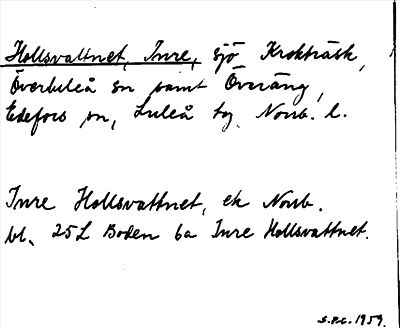 Hollsvattnet, Inre, sjö Krokträsk,
Överluleå sn samt Överäng,
Edefors sn, Luleå tg. Norrb. l.
Inre Hollsvattnet, ek Norrb.
bl. 25L Boden 6a Inre Hollsvattnet.
S.P.C. 1959.